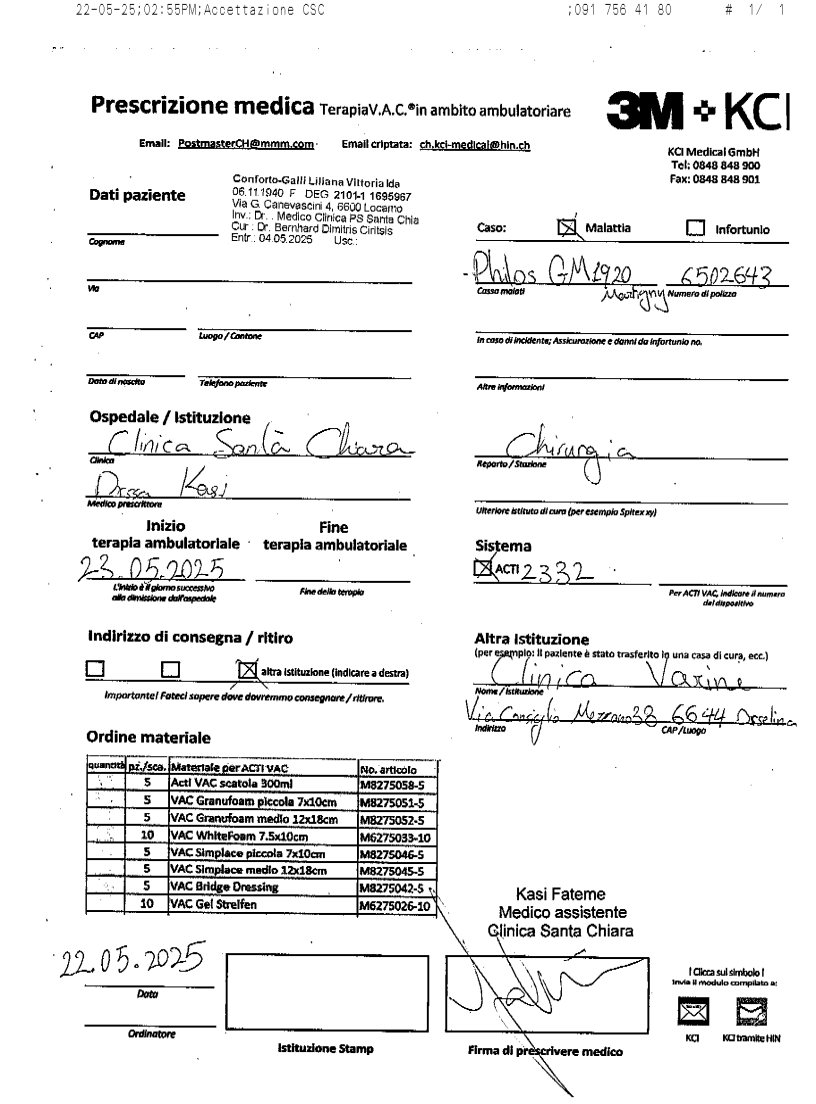 22-05-25;02:55PM;Accettazione CSC ;091 756 41 80 # 1/ 1
Prescrizione medica TerapiaV.A.C.®in ambito ambulatoriare
3M KCI
Email: PostmasterCH@mmm.com Email criptata: ch.kci-medical@hin.ch
KCI Medical GmbH
Tel: 0848 848 900
Fax: 0848 848 901
Dati paziente
Conforto-Galli Liliana Vittoria Ida
06.11.1940 F DEG 2101-1 1695967
Via G. Canevascini 4, 6600 Locarno
Inv.: Dr. . Medico Clinica PS Santa Chia
Cur : Dr. Bernhard Dimitris Ciritsis
Entr.: 04.05.2025 Usc.:
Cognome
Via
CAP Luogo / Cantone
Data di nascita Telefono paziente
Caso: Malattia Infortunio
Philos GM1920 6502643
Cassa malati Martigny Numero di polizza
In caso di incidente; Assicurazione e danni da infortunio no.
Altre informazioni
Ospedale / Istituzione
Clinica Santa Chiara
Clinica
Dr.ssa Kasi
Medico prescrittore
Chirurgia
Reparto / Stazione
Ulteriore istituto di cura (per esempio Spitex xy)
Inizio
terapia ambulatoriale
Fine
terapia ambulatoriale
23.05.2025
L'inizio è il giorno successivo
alla dimissione dall'ospedale
Fine della terapia
Sistema
ACTI 2332
Per ACTI VAC, indicare il numero
del dispositivo
Indirizzo di consegna / ritiro
altra istituzione (indicare a destra)
Importante! Fateci sapere dove dovremmo consegnare / ritirare.
Altra istituzione
(per esempio: il paziente è stato trasferito in una casa di cura, ecc.)
Clinica Varini
Nome / Istituzione
Via Consiglio Mezzano 38 6644 Orselina
Indirizzo CAP /Luogo
Ordine materiale
quantità pz./sca. Materiale per ACTI VAC No. articolo
5 Acti VAC scatola 300ml M8275058-5
5 VAC Granufoam piccola 7x10cm M8275051-5
5 VAC Granufoam medio 12x18cm M8275052-5
10 VAC WhiteFoam 7.5x10cm M6275033-10
5 VAC Simplace piccola 7x10cm M8275046-5
5 VAC Simplace medio 12x18cm M8275045-5
5 VAC Bridge Dressing M8275042-5
10 VAC Gel Streifen M6275026-10
Kasi Fateme
Medico assistente
Clinica Santa Chiara
22.05.2025
Data
Ordinatore
Istituzione Stamp
Firma di prescrivere medico
! Clicca sul simbolo !
Invia il modulo compilato a:
KCI KCI tramite HIN